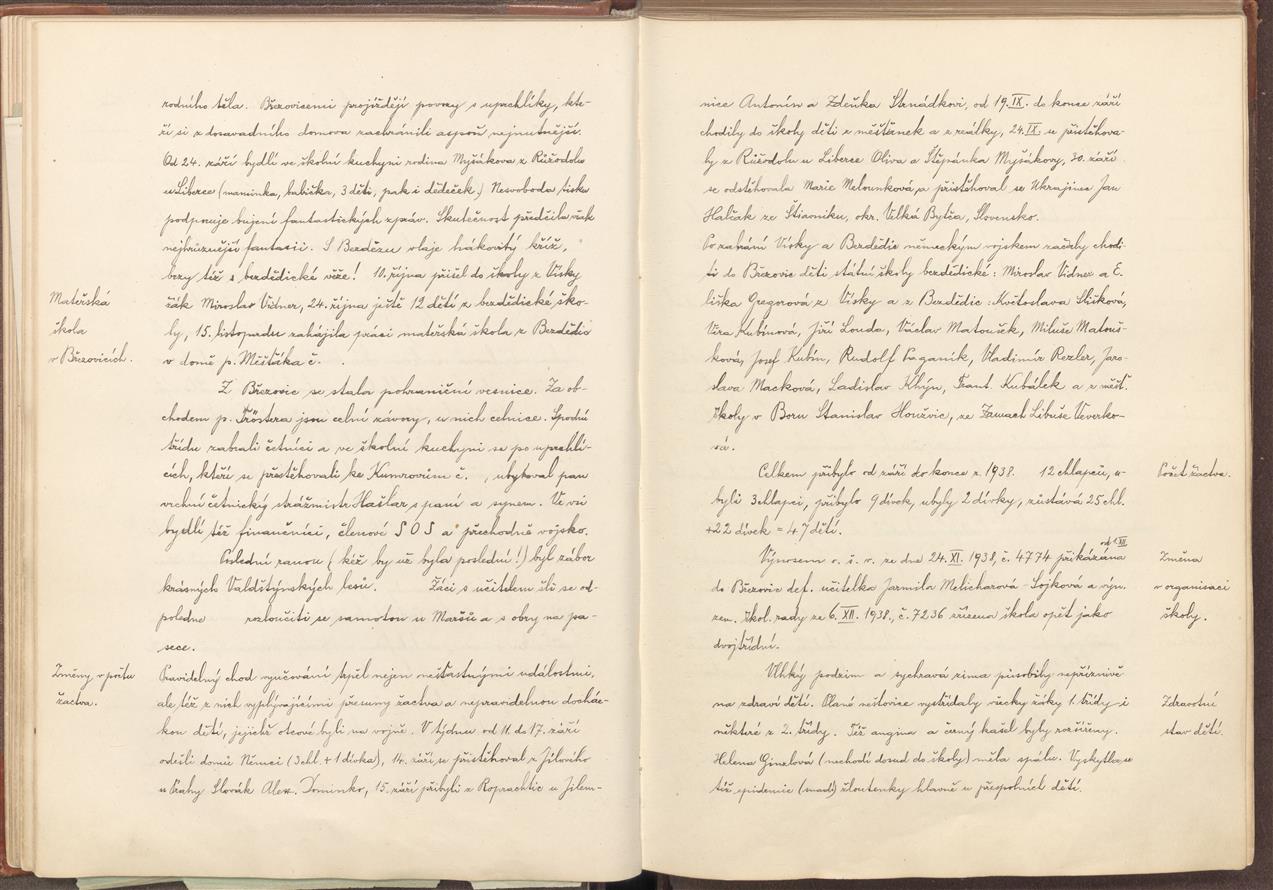 rodního těla. Březovicemi projíždějí povozy s uprchlíky, kte-
ří si z dosavadního domova zachránili aspoň nejnutnější.
Od 24. září bydlí ve školní kuchyni rodina Myšákova z Růžodolu
u Liberce (maminka, babička, 3 děti, pak i dědeček.) Nesvoboda tisku
podporuje bujení fantastických zpráv. Skutečnost předčila však
nejhrůznější fantasii. S Bezdězu vlaje hákovitý kříž,
brzy též s bezdědické věže! 10. října přišel do školy z Vísky
Mateřská
škola
v Březovicích.
žák Miroslav Vidner, 24. října ještě 12 dětí z bezdědické ško-
ly, 15. listopadu zahájila práci mateřská škola z Bezdědic
v domě p. Měšťáka č. .
Z Březovic se stala pohraniční vesnice. Za ob-
chodem p. Fröstera jsou celní závory, u nich celnice. Spodní
třídu zabrali četníci a ve školní kuchyni se po uprchlí-
cích, kteří se přestěhovali ke Kunvovům č. , ubytoval pan
vrchní četnický strážmistr Hašlar s paní a synem. Ve vsi
bydlí též financové, členové S O S a přechodně vojsko.
Poslední ranou (kéž by už byla poslední!) byl zábor
krásných Valdštýnských lesů. Žáci s učitelem šli se od-
poledne rozloučiti se samotou u Maršů a s obry na pa-
sece.
Změny v počtu
žactva.
Pravidelný chod vyučování trpěl nejen nešťastnými událostmi,
ale též z nich vyplývajícími přesuny žactva a nepravidelnou docház-
kou dětí, jejichž otcové byli na vojně. V týdnu od 11. do 17. září
odešli domů Němci (3 chl. + 1 dívka), 14. září se přistěhoval z Jílového
u Prahy Slovák Alex. Dominko, 15. září přibyli z Roprachtic u Jilem-
nice Antonín a Zdeňka Strnádkovi, od 19. IX. do konce září
chodily do školy děti z měšťanek a z reálky, 24. IX. se přistěhova-
ly z Růžodolu u Liberce Oliva a Štěpánka Myšákovy, 30. září
se odstěhovala Marie Melounková a přistěhoval se Ukrajinec Jan
Halčak ze Štiavniku, okr. Velká Bytča, Slovensko.
Po zabrání Vísky a Bezdědic německým vojskem začaly chodi-
ti do Březovic děti státní školy bezdědické: Miroslav Vidner a E-
liška Gregorová z Vísky a z Bezdědic: Květoslava Slišková,
Věra Kubínová, Jiří Louda, Václav Matoušek, Miluše Matouš-
ková, Josef Kubín, Rudolf Paganik, Vladimír Rezler, Jaro-
slava Macková, Ladislav Khýn, Frant. Kubálek a z měšť.
školy v Boru Stanislav Houžvic, ze Zamach Libuše Veverko-
vá.
Počet žactva.
Celkem přibylo od září do konce r. 1938. 12 chlapců, u-
byli 3 chlapci, přibylo 9 dívek, ubyly 2 dívky, zůstává 25 chl.
+ 22 dívek = 47 dětí.
Změna
v organisaci
školy.
od 1. XII.
Výnosem o. š. v. ze dne 24. XI. 1938, č. 4774 přikázána
do Březovic def. učitelka Jarmila Melicharová - Sojková a výn.
zem. škol. rady ze 6. XII. 1938., č. 7236 zřízena škola opět jako
dvojtřídní.
Zdravotní
stav dětí.
Vlhký podzim a sychravá zima působily nepříznivě
na zdraví dětí. Plané neštovice vystřídaly všecky žáky 1. třídy i
některé z 2. třídy. Též angina a černý kašel byly rozšířeny.
Helena Ginzlová (nechodí dosud do školy) měla spálu. Vyskytla se
též epidemie (snad) žloutenky hlavně u přespolních dětí.